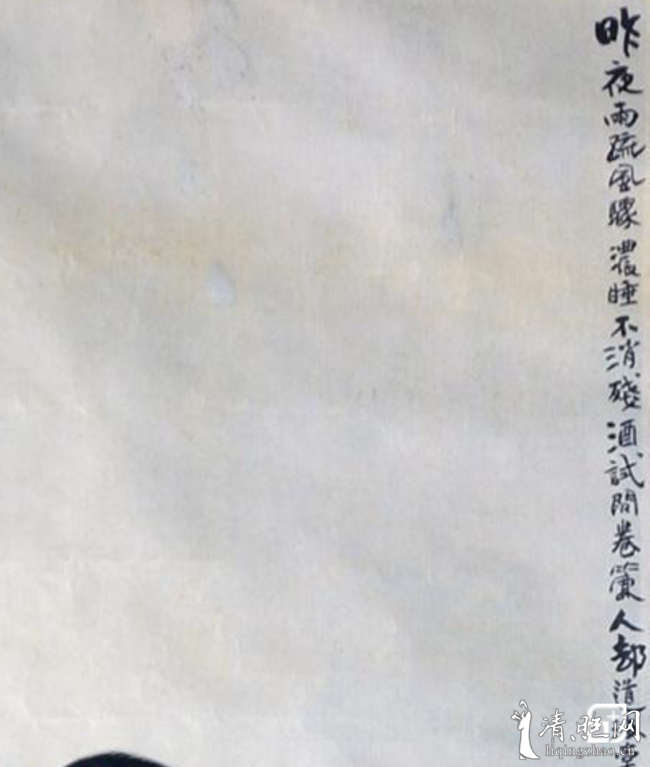 昨夜雨疏風驟濃睡不消殘酒試問卷簾人都道
清照网
liqingzhao.cn